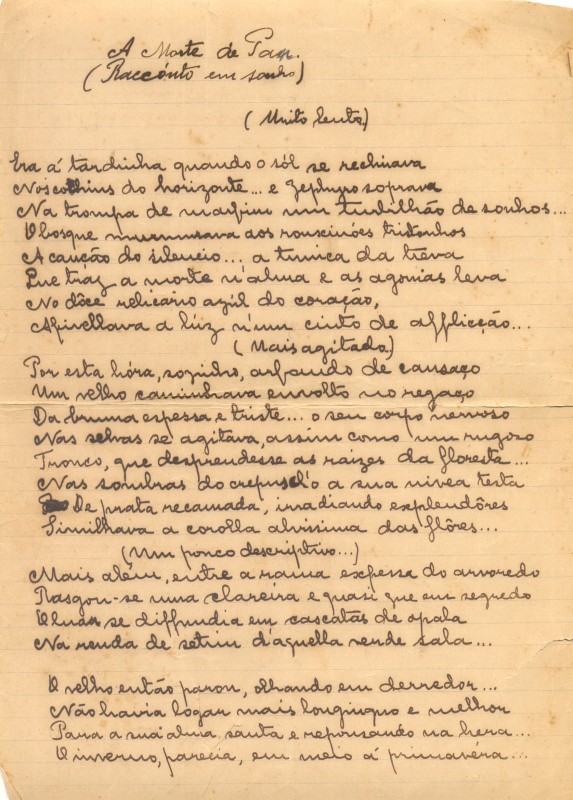 A Morte de Pan.
(Raccónto em sonho)
(Muito lento.)
Era á tardinha quando o sól se reclinava
Nos cothins do horizonte... e Zephyro soprava
Na trompa de marfim um turbilhão de sonhos...
O bosque murmurava aos rouxinóes tristonhos
A canção do silencio... a tunica da treva
Que traz a morte n'alma e as agonias leva
No dôce relicario azul do coração,
Afivellava a lúz n'um cinto de afflicção...
(Mais agitado.)
Por esta hóra, sozinho, arfando de cansaço
Um velho caminhava envolto no regaço
Da bruma espessa e triste... o seu corpo nervoso
Nas selvas se agitava, assim como um rugoso
Tronco, que desprendesse as raizes da floresta...
Nas sombras do crepusc'lo a sua nivea testa
De prata recamada, irradiando explendôres
Similhava a corolla alvissima das flôres...
(Um pouco descriptivo...)
Mais além, entre a rama expessa do arvoredo
Rasgou-se uma clareira e quasi que em segredo
O luar se diffundia em cascatas de opala
Na renda de setim d'aquella verde sala...
O velho então parou, olhando em derredor...
Não havia logar mais longinquo e melhor
Para a sua alma santa e repousando na hera...
O inverno, parecia, em meio á primavéra...